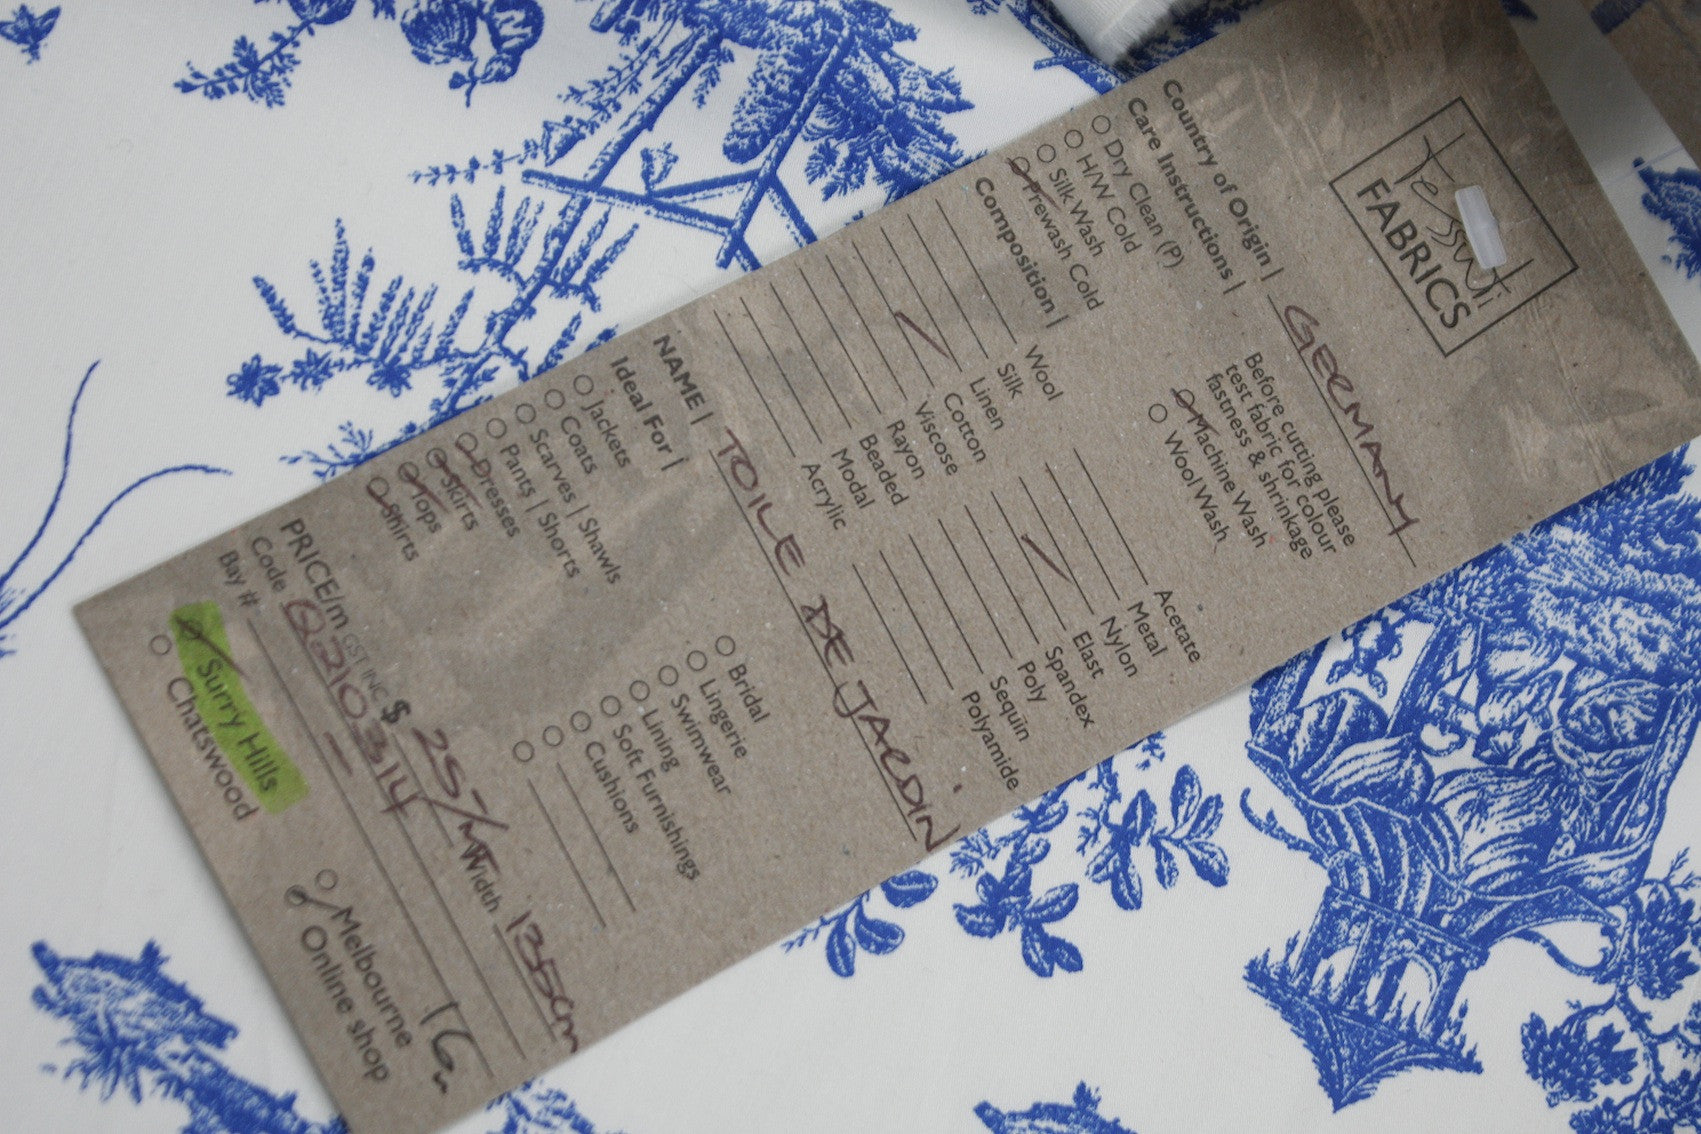 Tessuti
FABRICS
Country of Origin | GERMANY
Care Instructions |
Dry Clean (P)
H/W Cold
Silk Wash
Prewash Cold
Before cutting please
test fabric for colour
fastness & shrinkage
Machine Wash
Wool Wash
Composition |
Wool
Silk
Linen
Cotton
Viscose
Rayon
Beaded
Modal
Acrylic
Acetate
Metal
Nylon
Elast
Spandex
Poly
Sequin
Polyamide
NAME | TOILE DE JARDIN
Ideal For |
Jackets
Coats
Scarves | Shawls
Pants | Shorts
Dresses
Skirts
Tops
Shirts
Bridal
Lingerie
Swimwear
Lining
Soft Furnishings
Cushions
PRICE/m GST INC $ 25-/M Width 135cm
Code
Bay #
Surry Hills
Chatswood
Melbourne
Online shop